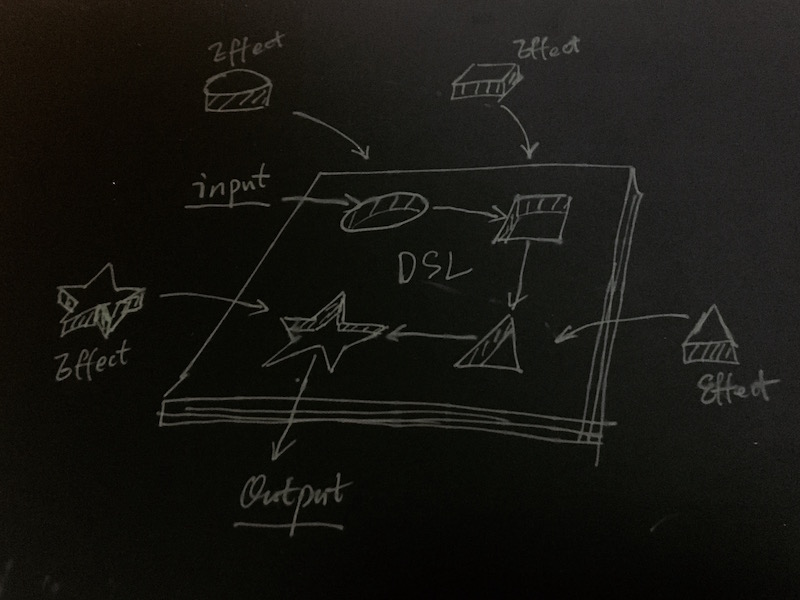 Effect
Effect
input
DSL
Effect
Effect
Output